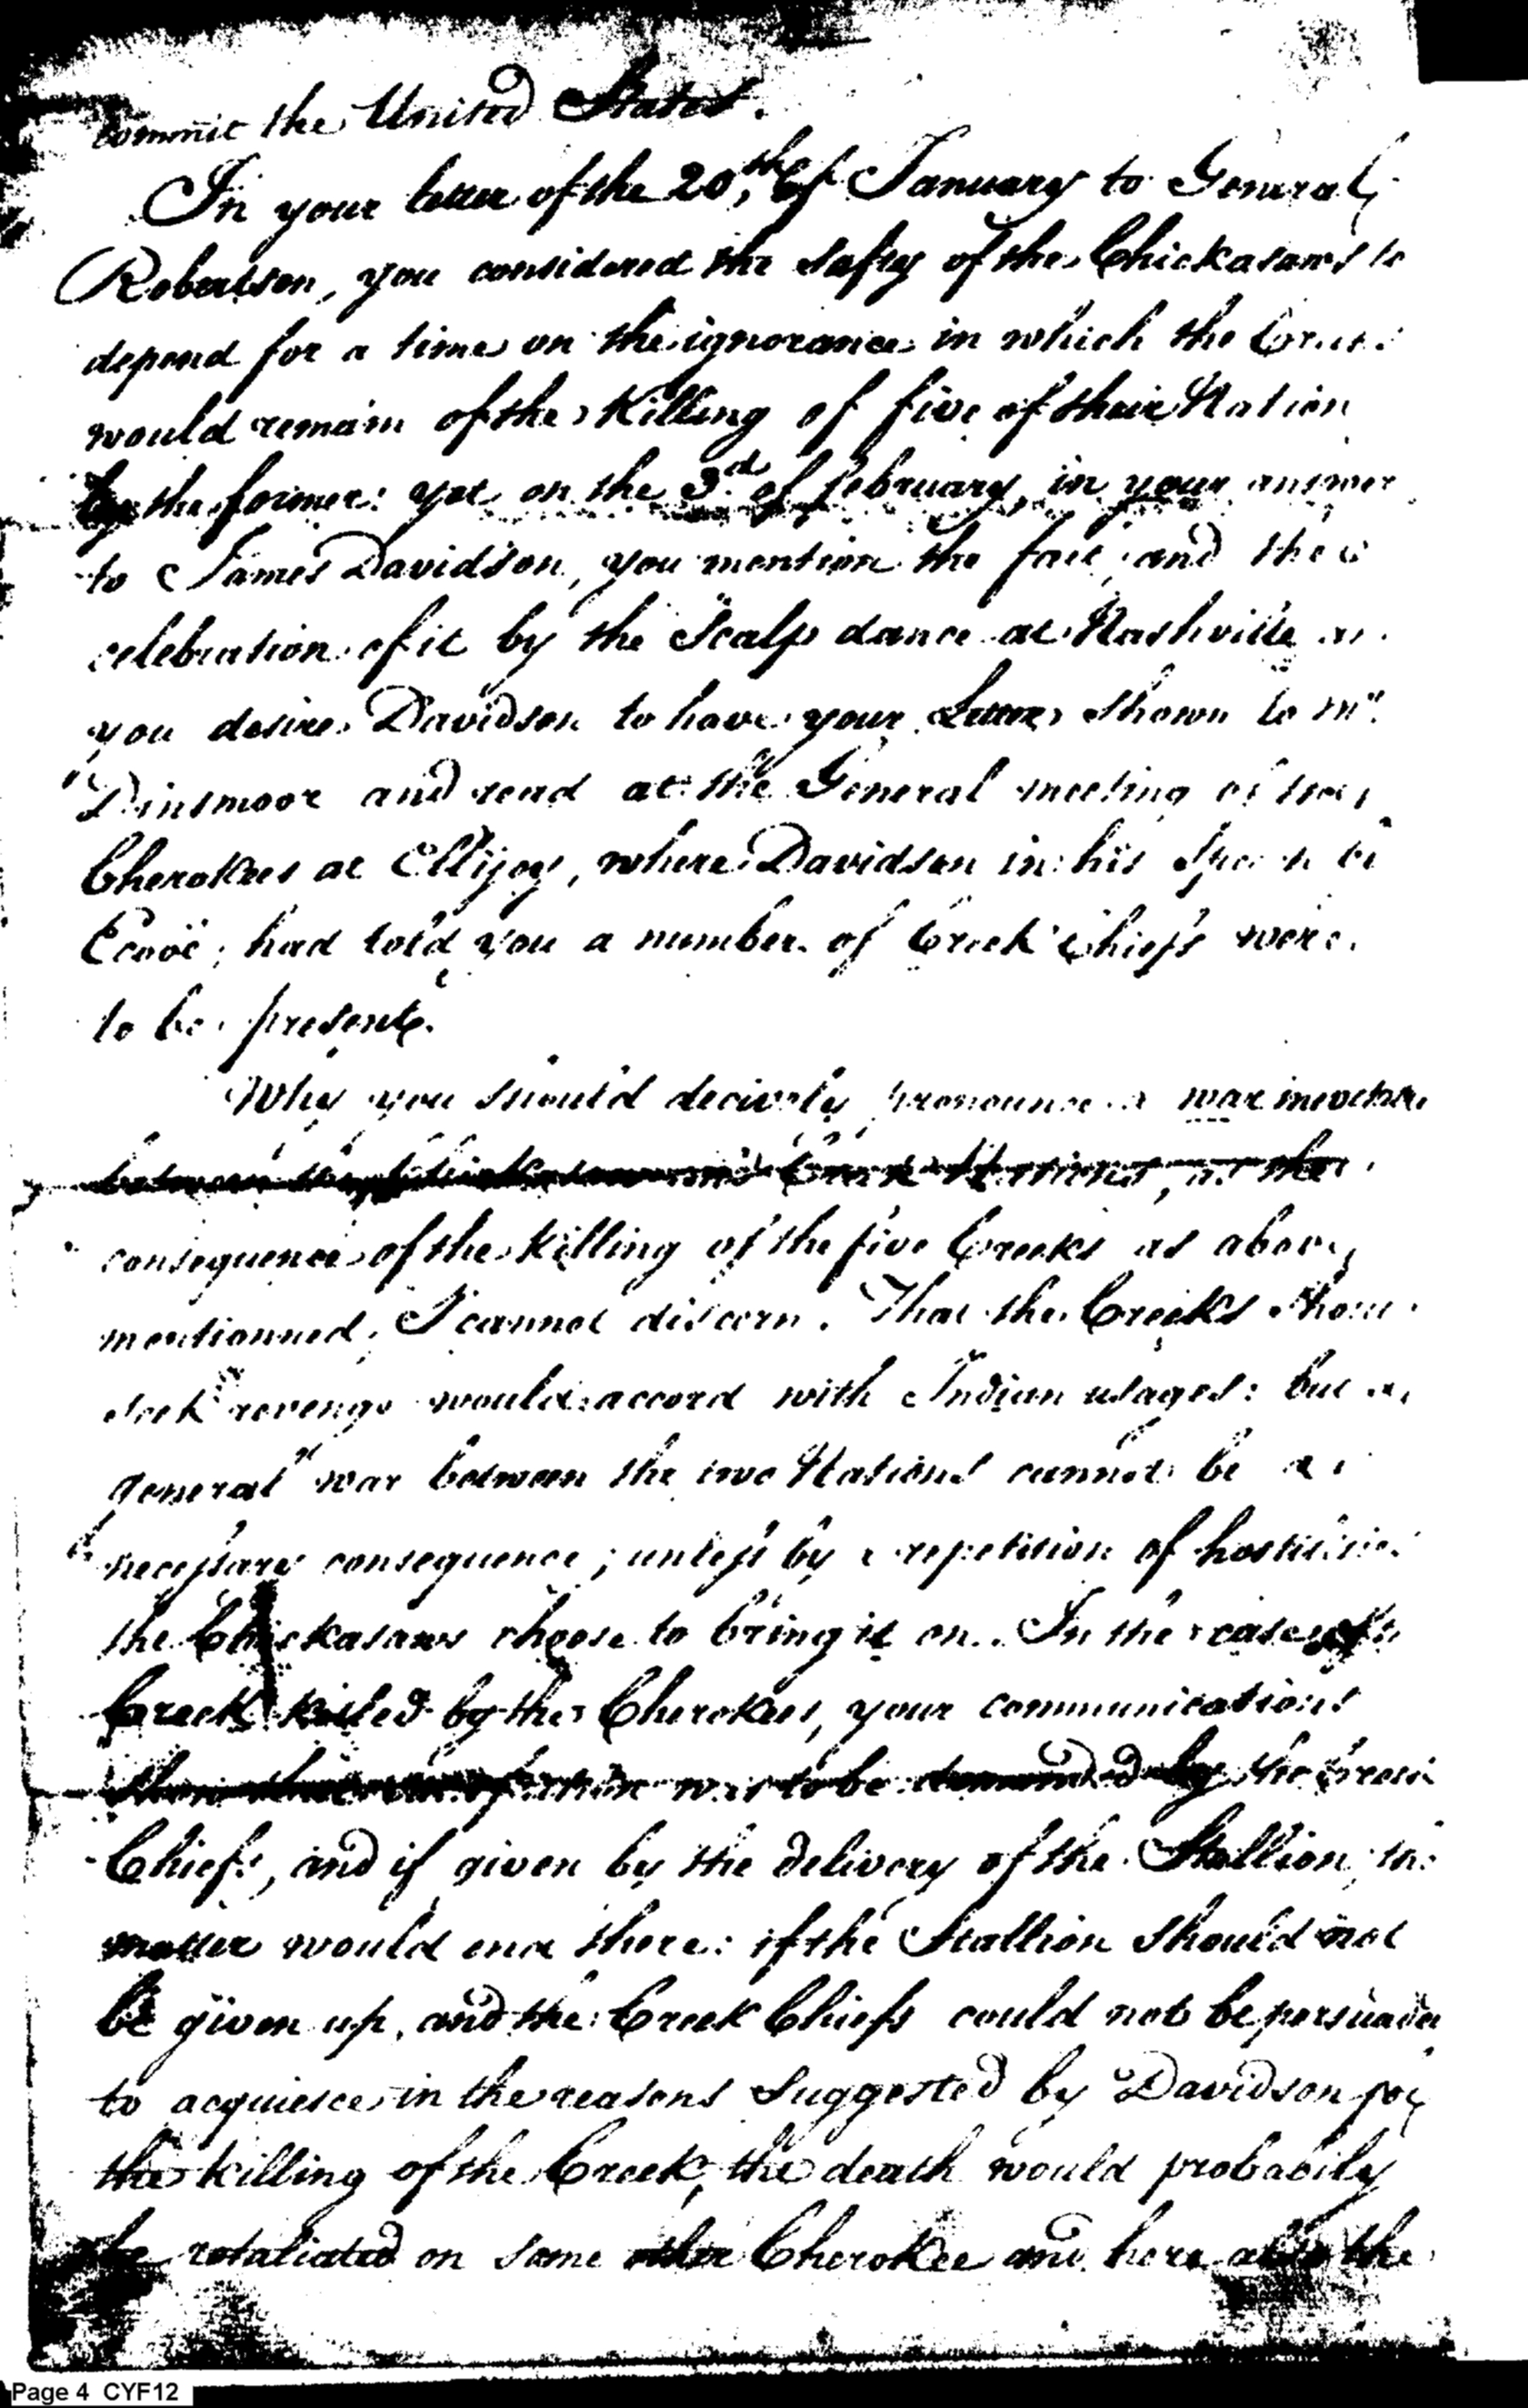 commit the United States.
In your letter of the 20th, of January to General
Robertson, you considered the safty of the Chickasaws to
depend for a time on the ignorance in which the
would remain of the Killing of five of their Nation
by the former: yet on the 3rd. of february, in your answer
to James Davidson, you mention the fact, and the
celebration of it by the Scalp dance at Nashville
you desire Davidson to have your Letter shown to Mr.
Dinsmoor and read at the General meeting of the
Cherokees at Ellijoy, where Davidson in his
Ecooe, had told you a number of Creek Chiefs were
to be present.
Why you should decively pronounce a war inevitable
between the Chickasaw and Creek Nations, as the
consequence of the killing of the five Creeks as above
mentionned, I cannot discern. That the Creeks
seek revenge would accord with Indian usages: but a
general war between the two Nations cannot be a
necessary consequence; unless by a repetition of hostilities
the Chickasaws choose to bring it on. In the case of the
Creek killed by the Cherokees, your communications
was to be demanded by the Creek
Chiefs, and if given by the delivery of the Stallion, the
matter would end there: if the Stallion should not
be given up, and the Creek Chiefs could not be persuaded
to acquiesce in the reasons suggested by Davidson for
the killing of the Creek, the death would probabily
be retaliated on some other Cherokee and here also the
Page 4 CYF12